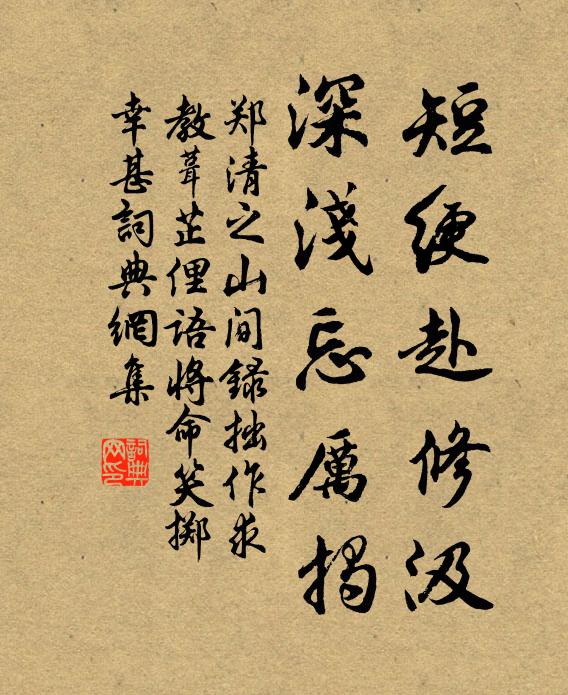 短绠赴修汲
深淺忘厲揭
郑清之山间録拙作求
教葺芷俚语将命笑掷
幸甚詞典網集
詞典网印